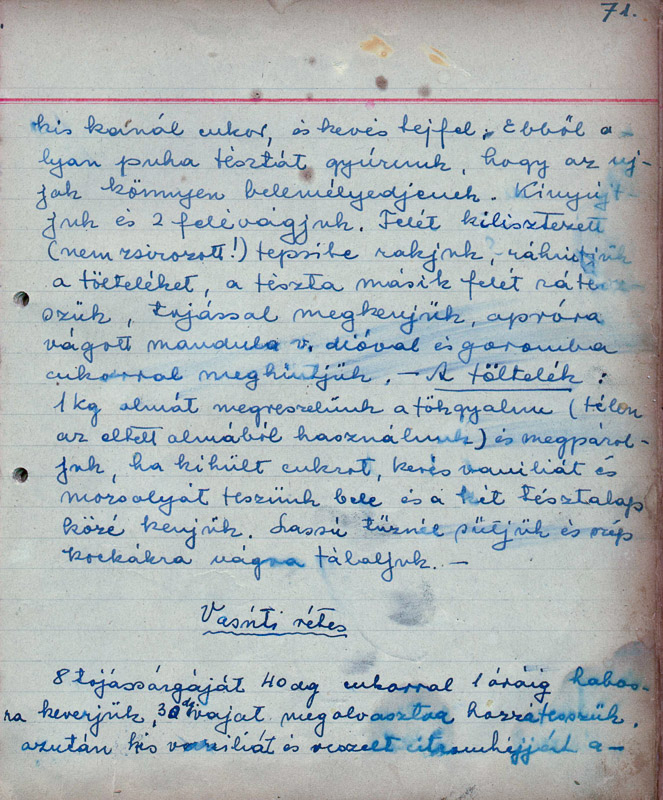 71.
kis kanál cukor, és kevés tejfel. Ebből o-
lyan puha tésztát gyúrunk, hogy az uj-
jak könnyen belemélyedjenek. Kinyújt-
juk és 2 felé vágjuk. Felét kilisztezett
(nem zsirozott!) tepsibe rakjuk, ráhintjük
a tölteléket, a tészta másik felét rátesz-
szük, tojással megkenjük, apróra
vágott mandula v. dióval és goromba
cukorral meghintjük. — A töltelék:
1 kg almát megreszelünk a tökgyalun (télen
az eltett almából használunk) és megpárol-
juk, ha kihült cukrot, kevés vaniliát és
mozsolyát teszünk bele és a két tésztalap
közé kenjük. Lassú tűznél sütjük és szép
kockákra vágva tálaljuk. —
Vasúti rétes
8 tojássárgáját 40 dg cukorral 1 óráig habos-
ra keverjük, 30 dg vajat megolvasztva hozzáteszük,
azután kis vaniliát és reszelt citromhéjját a-